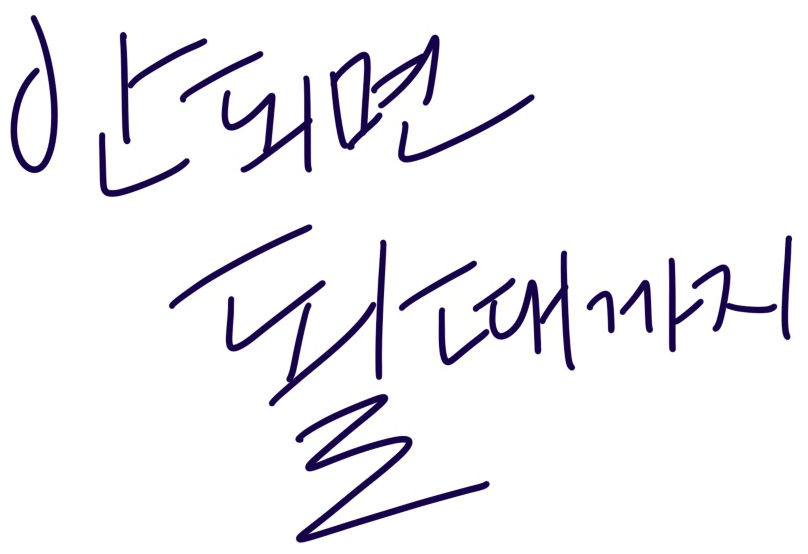 안되면
될때까지